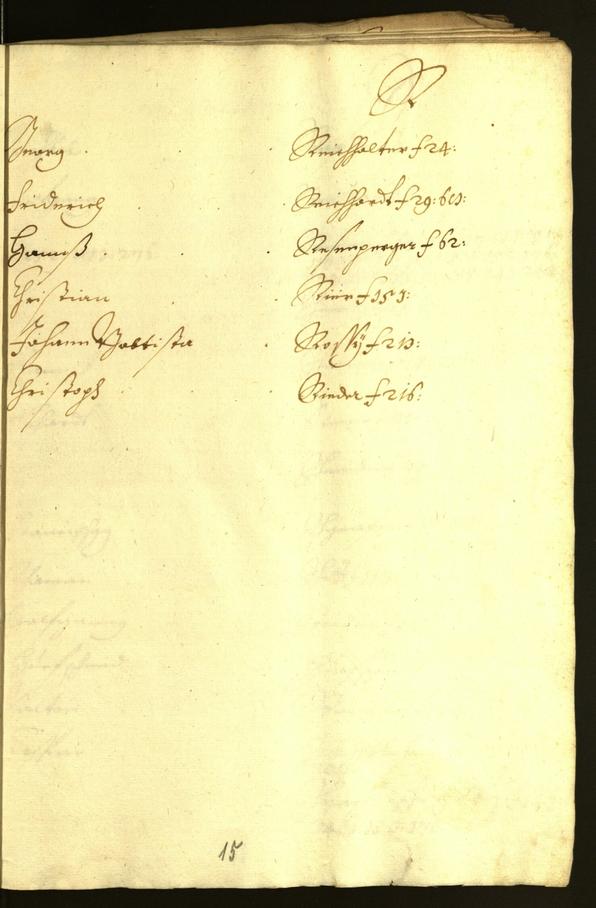 R
Georg . . . Reichhalter f 24:
Friderich . . Reichhardt f 29: 60:
Hannß . . . Resenperger f 62:
Christian . . . Rier f 151:
Johann Battista . Rossÿ f 213:
Christoph . . . Rieder f 216:
15